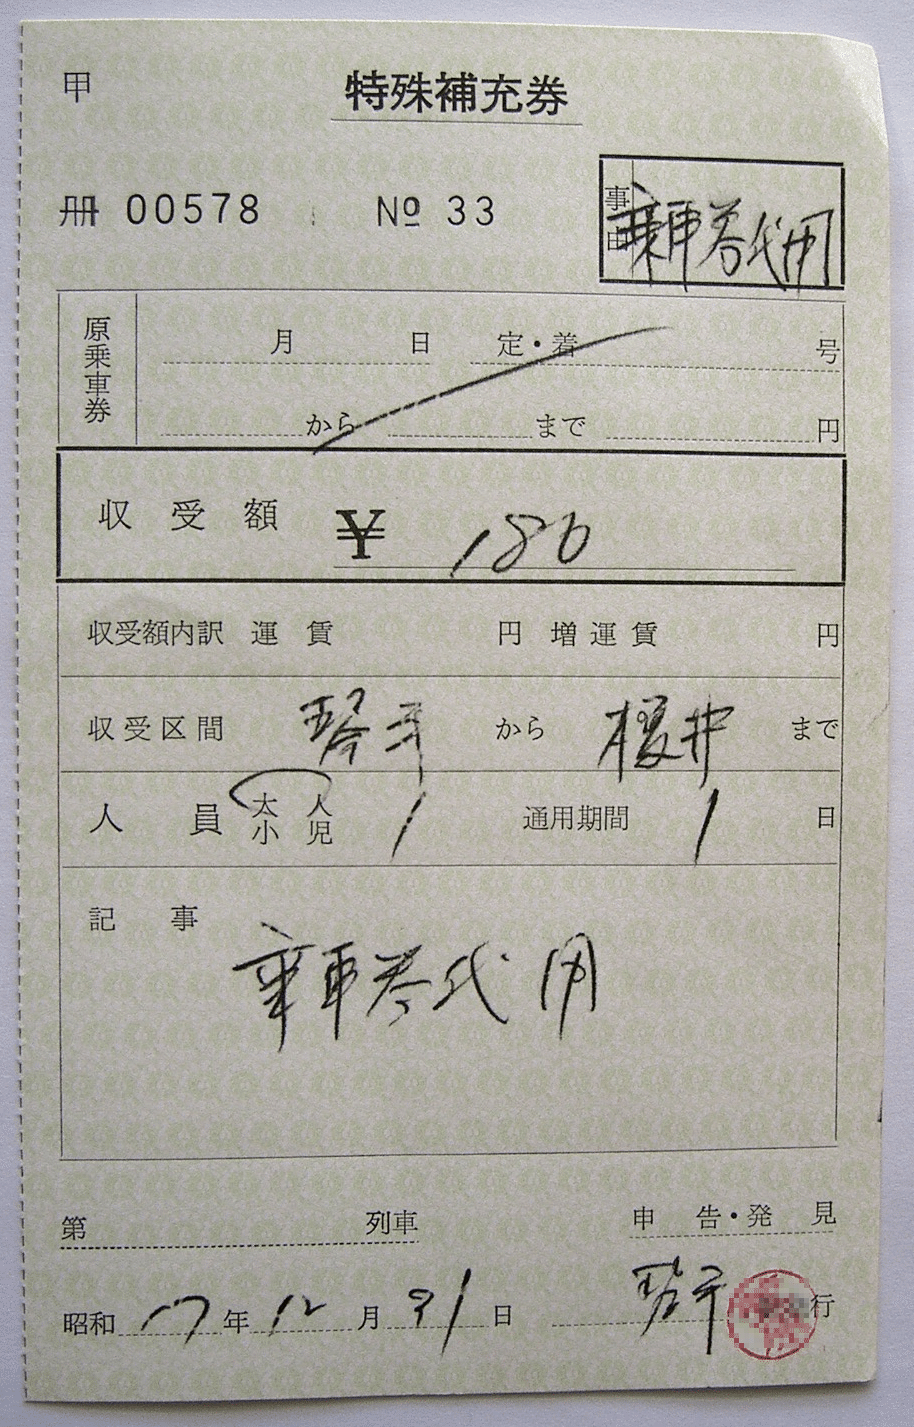 甲
特殊補充券
冊 00578 № 33
事由 乗車券代用
原乗車券
月 日 定・着 号
から まで 円
収受額 ¥ 180
収受額内訳 運賃 円 増運賃 円
収受区間 琴平 から 榎井 まで
人員 大人 小児 1 通用期間 1 日
記事
乗車券代用
第 列車 申告・発見
昭和 年 12 月 31 日 琴平 行